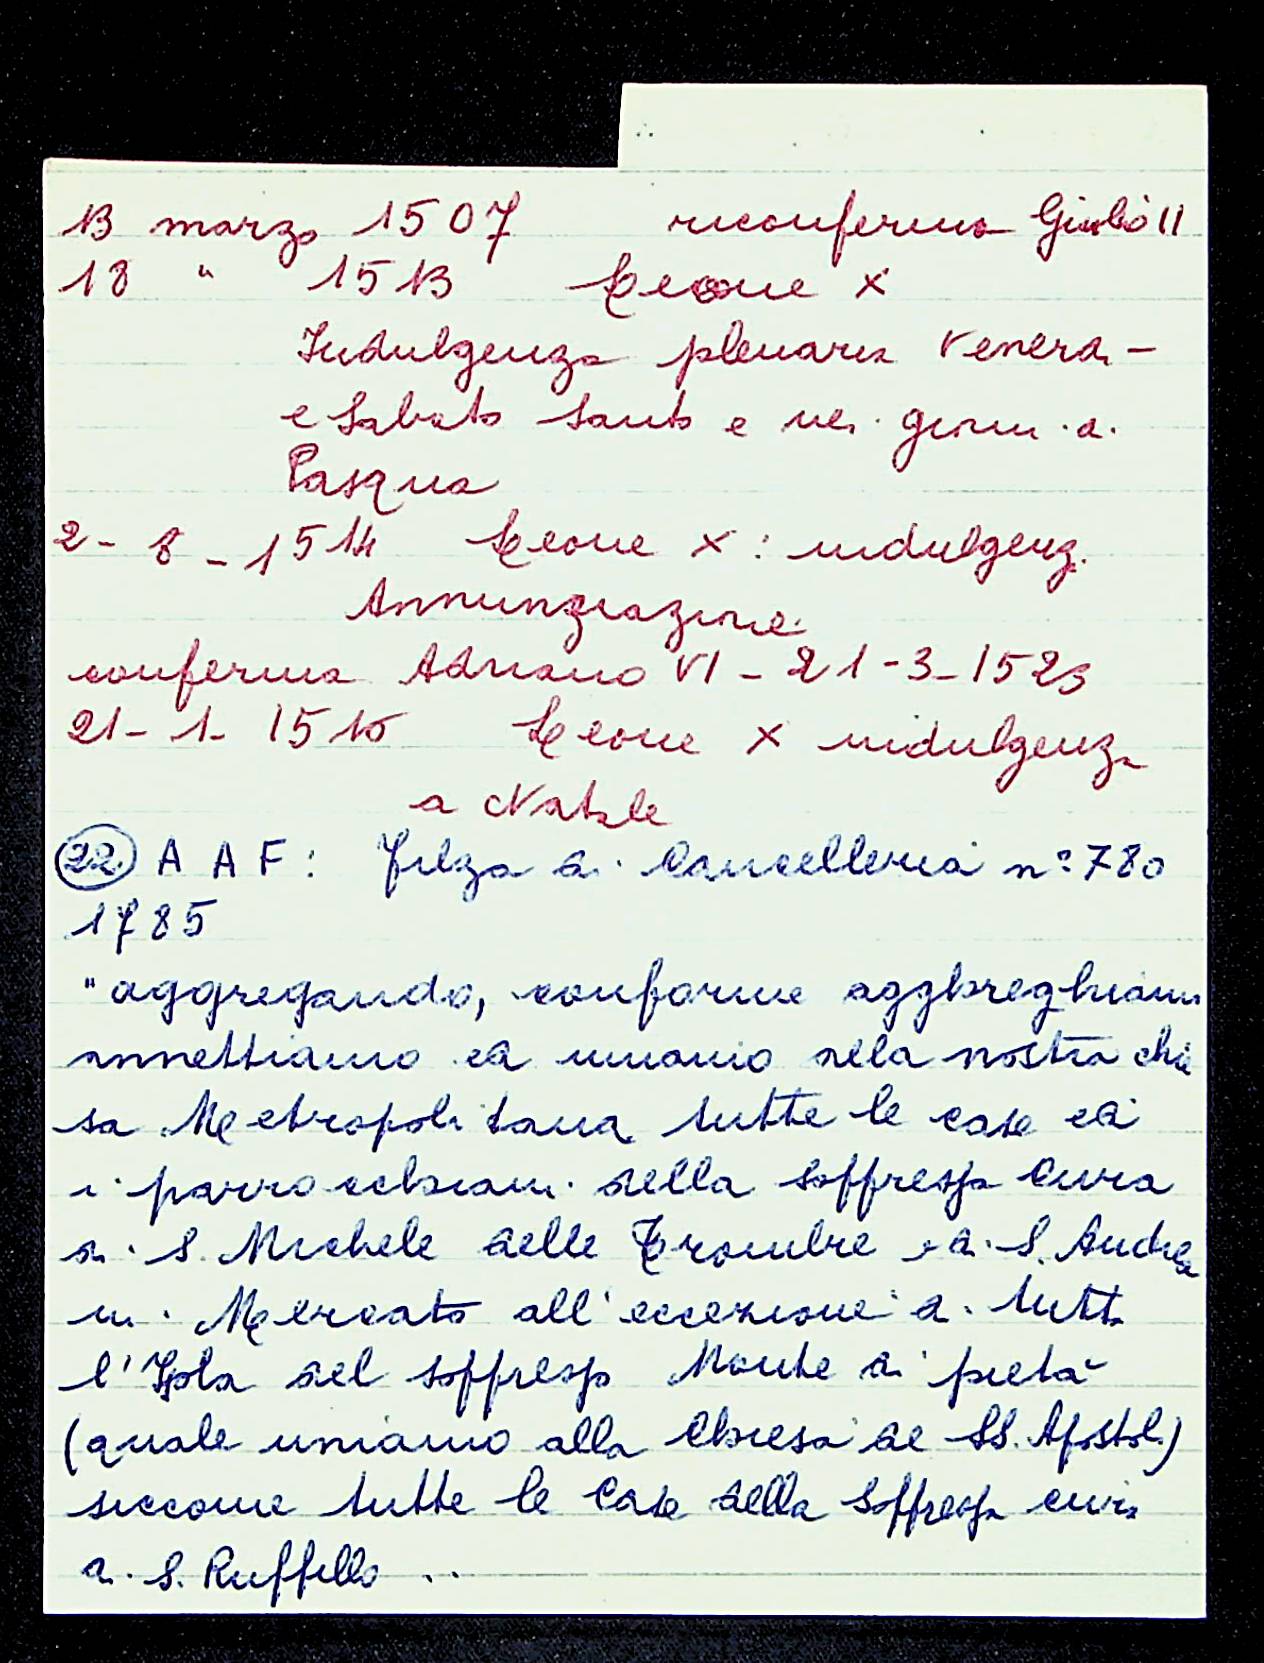 13 marzo 1507 riconferma Giulio II
18 " 1513 Leone X
Indulgenza plenaria Venerdi -
e Sabato Santo e nei giorni di
Pasqua
2 - 8 - 1514 Leone X : indulgenz.
Annunziazione
conferma Adriano VI - 21 - 3 - 1523
21 - 1 - 1515 Leone X indulgenza
a Natale
22. A A F : Filza di Cancelleria n° 780
1785
"aggregando, conforme agghreghiamo
annettiamo ed uniamo alla nostra chie
sa Metropolitana tutte le case ed
i parrocchiani della soppressa Cura
di S. Michele delle Trombe e di S. Andrea
in Mercato all'eccezione di tutta
l'Isola del soppresso Monte di pietà
(quale uniamo alla Chiesa de SS. Apostoli)
siccome tutte le Case della Soppressa cura
di S. Ruffillo ..